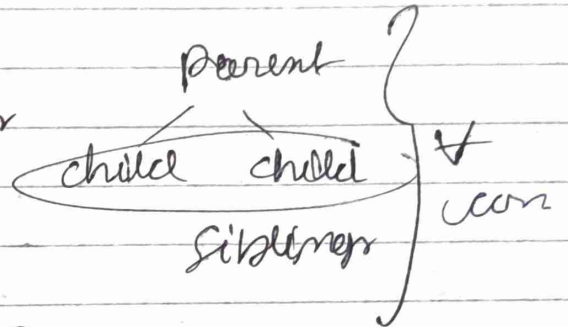 parent
child child
∀
siblings